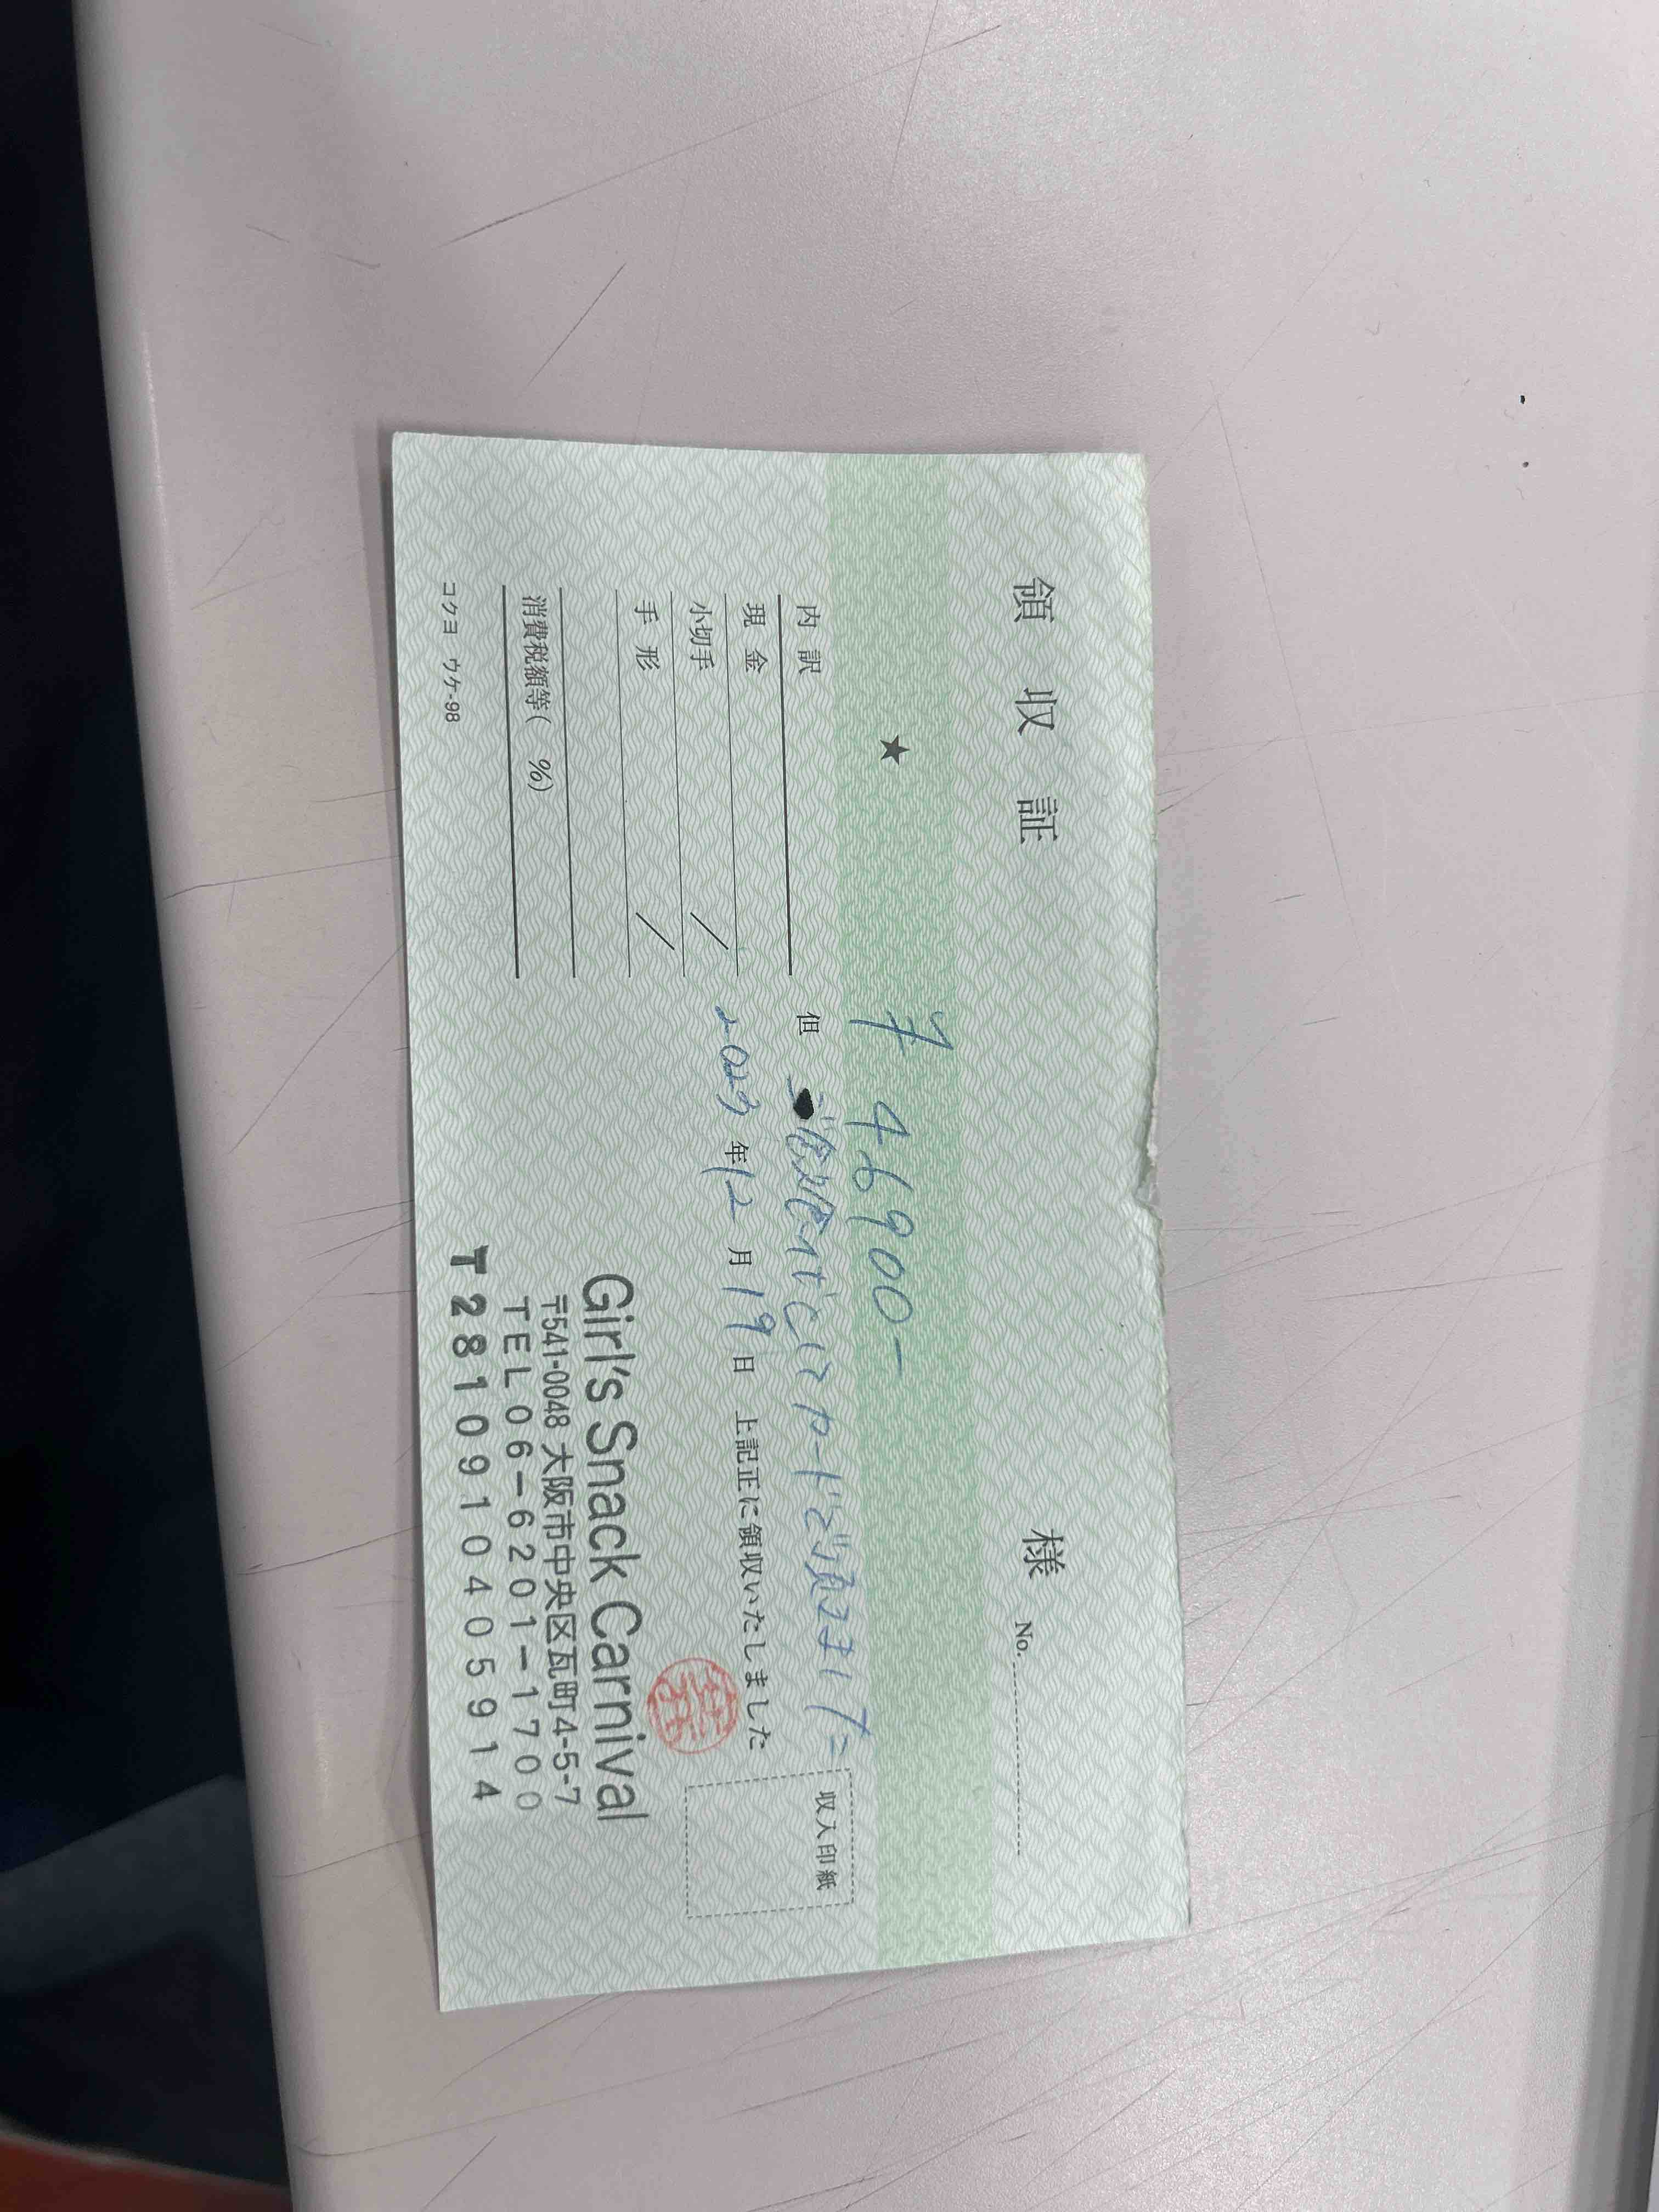 領収証
様 No.
★ ¥46900-
但 ご飲食代としてカードで頂きました
2023年12月19日 上記正に領収いたしました
内訳
現金
小切手 /
手形 /
消費税額等( %)
コクヨ ウケ-98
収入印紙
Girl's Snack Carnival
〒541-0048 大阪市中央区瓦町4-5-7
TEL06-6201-1700
T2810910405914